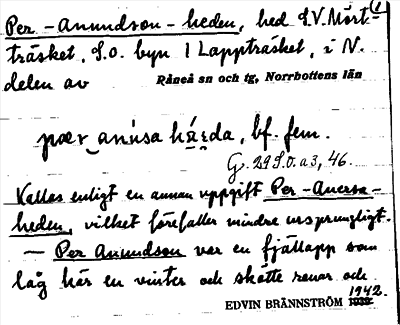 Per-Anundson-heden, hed S.V. Mört- 1
träsket, S.o. byn 1 Lappträsket, i N.
delen av Råneå sn och tg, Norrbottens län
pær anṵsa hä̱e̮da, bf. fem.
G. 29 S.o. a 3, 46.
Kallas enligt en annan uppgift Per-Anersa-
heden, vilket förefaller mindre ursprungligt.
— Per Anundson var en fjällapp som
låg här en vinter och skötte renar och
EDVIN BRÄNNSTRÖM 1939 1942.